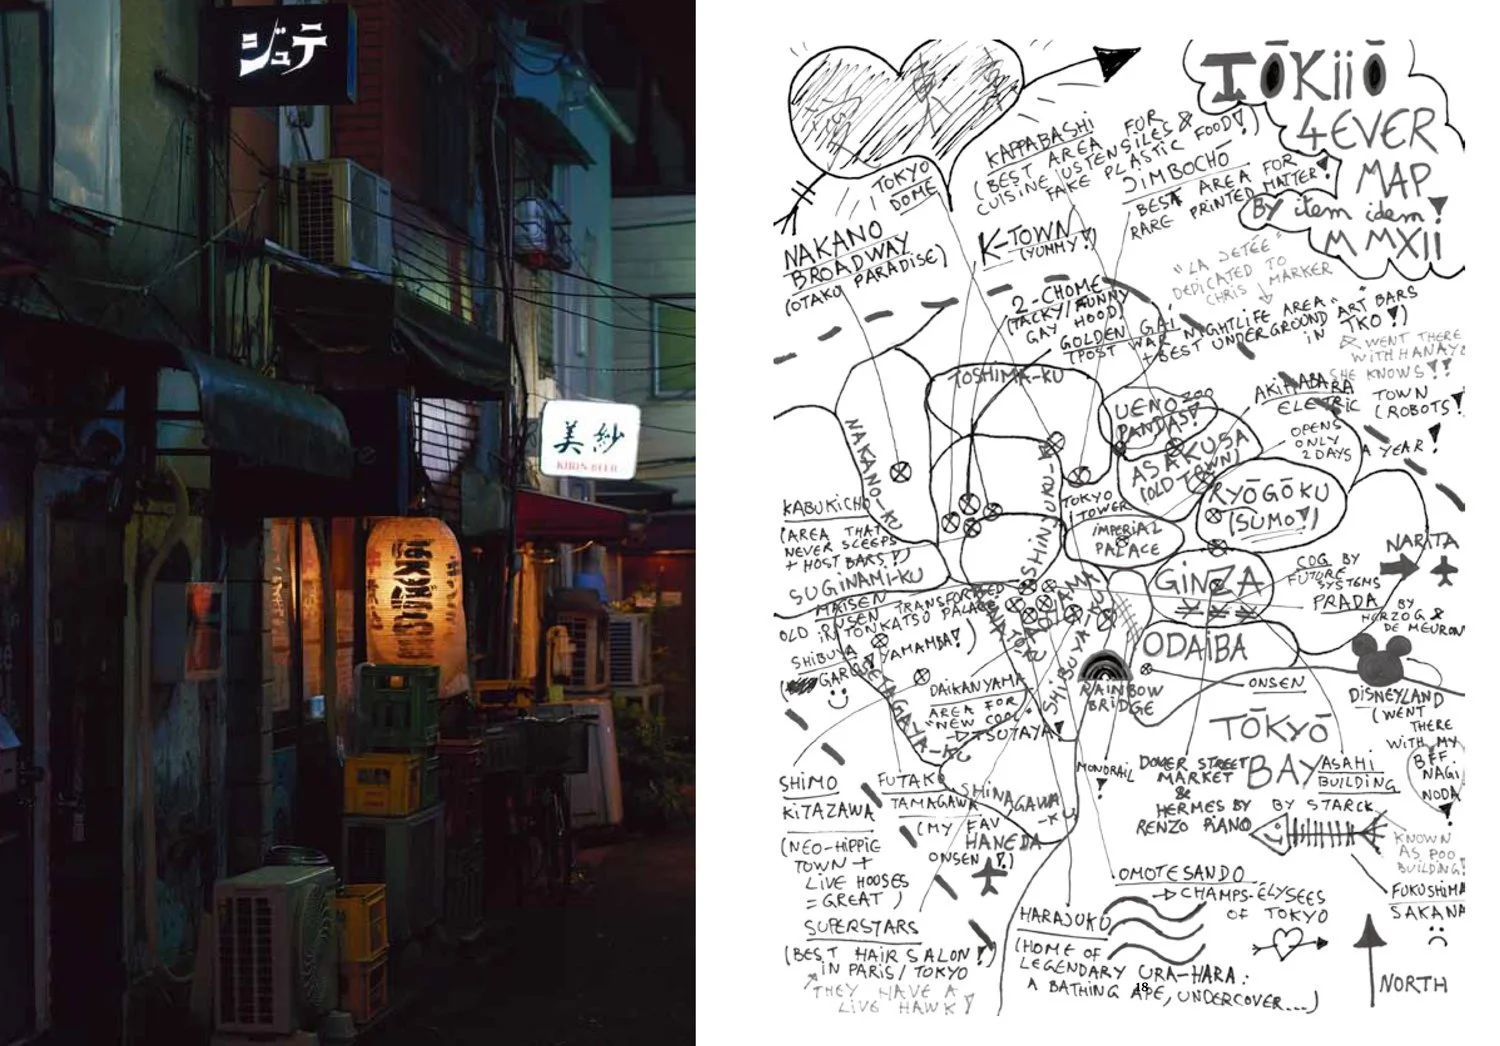 ジュテ
美紗
KIRIN BEER
東京
TŌKiiŌ
4EVER
MAP
BY item idem!
MMXII
KAPPABASHI
(BEST AREA FOR
CUISINE USTENSILES &
FAKE PLASTIC FOOD!)
JIMBOCHŌ
BEST AREA FOR
RARE PRINTED MATTER!
TOKYO
DOME
NAKANO
BROADWAY
(OTAKU PARADISE)
K-TOWN
(YUMMY!)
"LA JETÉE"
DEDICATED TO
CHRIS MARKER
2-CHOME
(TACKY/FUNNY
GAY HOOD)
GOLDEN GAI
(POST WAR NIGHTLIFE AREA "ART" BARS
+ BEST UNDERGROUND IN TKO!)
& WENT THERE
WITH HANAYO
SHE KNOWS!!
TOSHIMA-KU
UENO ZOO
PANDAS!
AKIHABARA
ELETRIC TOWN
(ROBOTS!
NAKANO-KU
ASAKUSA
(OLD TOWN)
OPENS
ONLY
2 DAYS A YEAR!
RYŌGŌKU
(SUMO!)
KABUKICHO
(AREA THAT
NEVER SLEEPS
+ HOST BARS!)
SHINJUKU-KU
TOKYO
TOWER
IMPERIAL
PALACE
SUGINAMI-KU
GiNZA
COG BY
FUTURE
SYSTEMS
NARITA
PRADA
BY
HERZOG &
DE MEURON
MAISEN
OLD ONSEN TRANSFORMED
IN TONKATSO PALACE
SHIBUYA
GARO! YAMAMBA!)
SETAGAYA-KU
AOYAMA
SHIBUYA
ODAiBA
RAINBOW
BRIDGE
ONSEN
DISNEYLAND
(WENT
THERE
WITH MY
BFF
NAGI
NODA
DAIKANYAMA
AREA FOR
"NEW COOL" +
TSUTAYA!
TŌKYŌ
BAY
MONORAIL
!
DOVER STREET
MARKET
&
HERMES BY
RENZO PIANO
ASAHI
BUILDING
BY STARCK
KNOWN
AS POO
BUILDING!
SHIMO
KITAZAWA
(NEO-HIPPIE
TOWN +
LIVE HOUSES
= GREAT)
FUTAKO
TAMAGAWA
(MY FAV
ONSEN!)
SHINAGAWA-KU
HANEDA
FUKUSHIMA
SAKANA
SUPERSTARS
(BEST HAIR SALON!)
IN PARIS/TOKYO
THEY HAVE A
LIVE HAWK!
OMOTESANDO
CHAMPS-ELYSEES
OF TOKYO
HARAJUKU
(HOME OF
LEGENDARY URA-HARA:
A BATHING APE, UNDERCOVER...)
18
NORTH